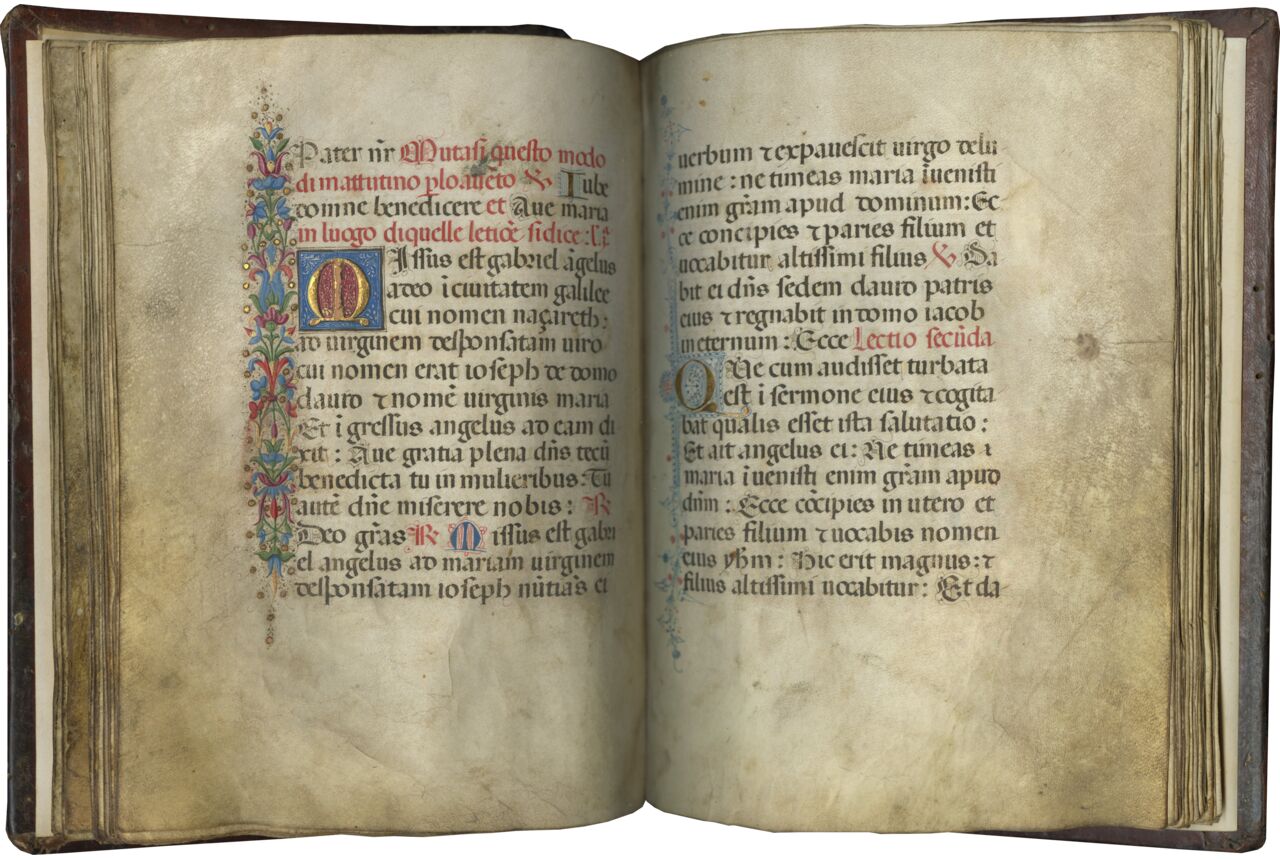 Pater nr̄ Mutasi questo modo
di mattutino p lo aueto & Iube
domne benedicere et Aue maria
in luogo di quelle leticē si dice: lā
MIssus est gabriel āgelus
a deo ī ciuitatem galilee
cui nomen naçareth:
ad uirginem desponsatam uiro
cui nomen erat ioseph de domo
dauid ⁊ nomē uirginis maria
Et ī gressus angelus ad eam di
xit: Aue gratia plena dn̄s tecū
benedicta tu in mulieribus: Tu
autē dn̄e miserere nobis: R
Deo grās R Missus est gabri
el angelus ad mariam uirginem
desponsatam ioseph nūtiās ei
uerbum ⁊ expauescit uirgo de lu
mine: ne timeas maria īuenisti
enim grām apud dominum: Ec
ce concipies ⁊ paries filium et
uocabitur altissimi filius & Da
bit ei dn̄s sedem dauid patris
eius ⁊ regnabit in domo iacob
in eternum: Ecce Lectio secūda
QAe cum audisset turbata
est ī sermone eius ⁊ cogita
bat qualis esset ista salutatio:
Et ait angelus ei: Ne timeas ı
maria īuenisti enim grām apud
dn̄m: Ecce cōcipies in utero et
paries filium ⁊ uocabis nomen
eius yh̄m: Hic erit magnus: ⁊
filius altissimi uocabitur: Et da